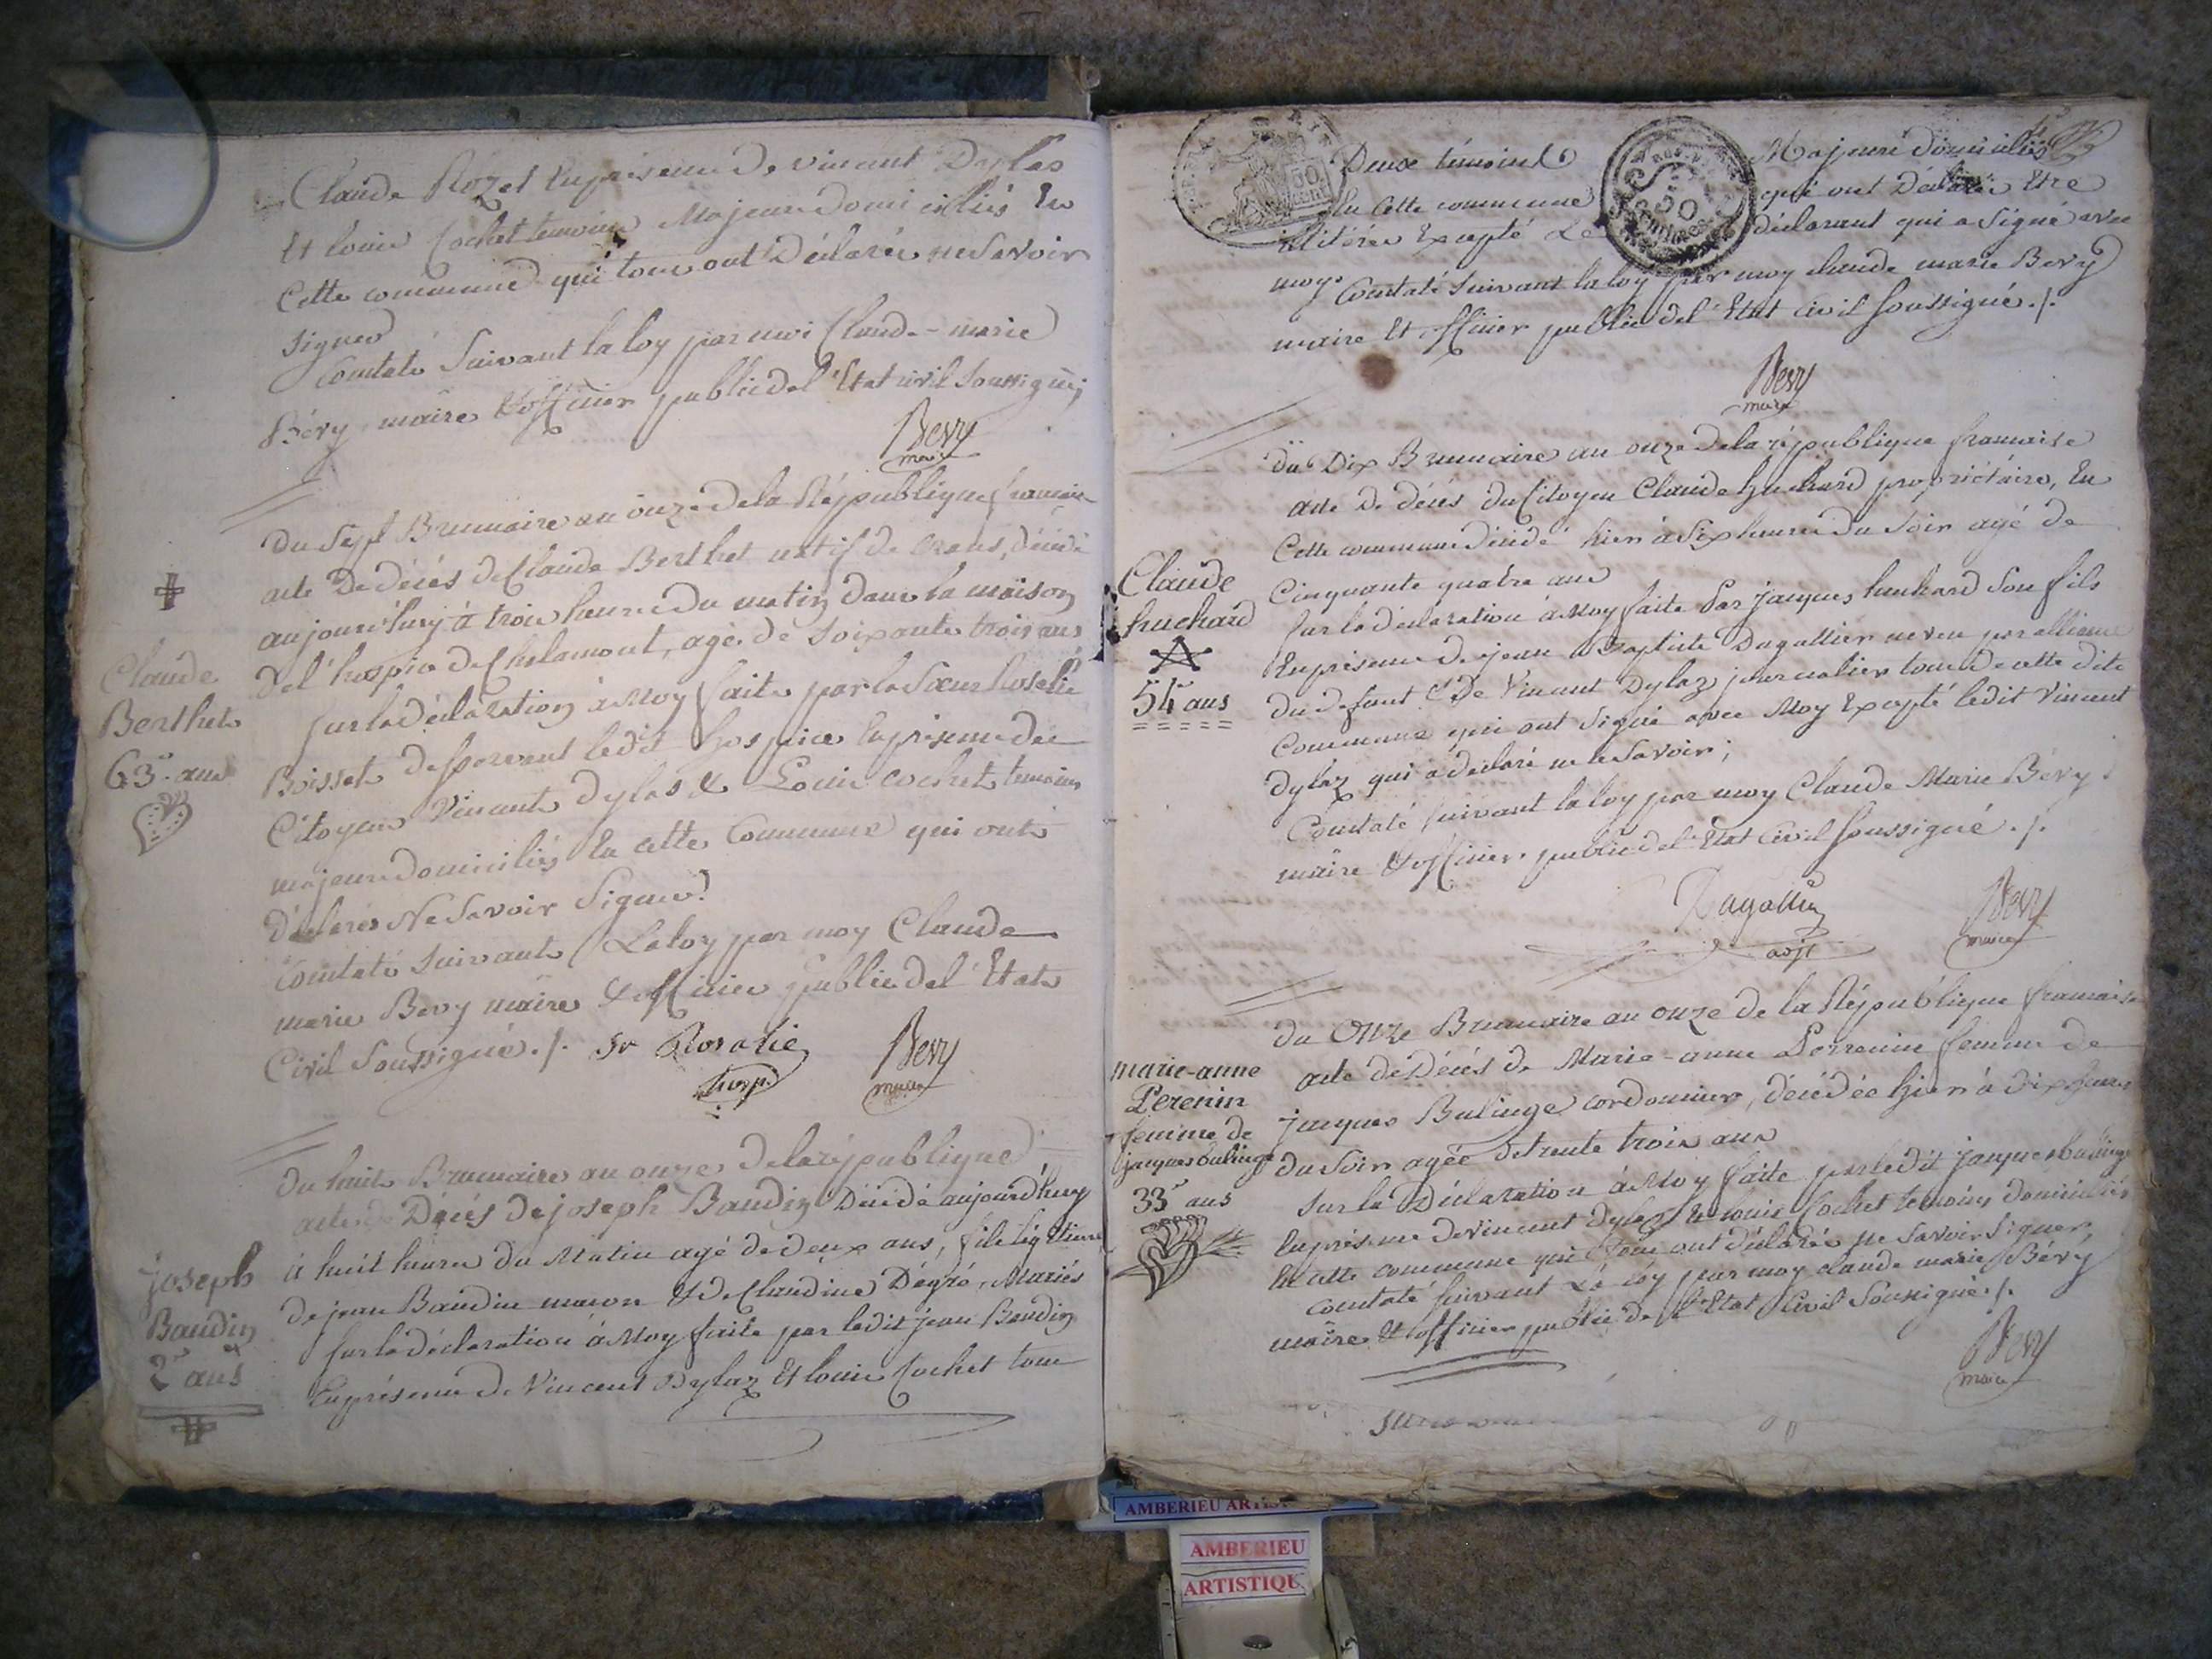 Claude Rozet En présence de vincant Dylas
Et louis Cochet temoins Majeurs domiciliés En
Cette commune qui tous ont Déclarés ne Savoir
signer
Constaté Suivant la loy par moi Claude-marie
Béry maire & officier public del'Etat civil Soussigné;
Bevy
maire
Du Sept Brumaire an onze de la République francaise
acte De décés de Claude Berthet natif de Crans, décédé
aujourd'huy à trois heures du matin dans la maison
del'hospice de Chalamont, agé de soixante trois ans
Sur la déclaration à Moy faite par la Sœur Rosalie
Boisset desservant ledit hospice En présence des
Citoyens Vincant dylas & Louis cochet temoins
majeurs domiciliés En cette Commune qui ont
déclarés Ne Savoir Signer.
Constaté suivant La loy par moy Claude
marie Bevy maire & officier public del'Etat
Civil Soussigné ./. Sr Rosalie
hosp.
Bevy
maire
Claude
Berthet
63 ans
Du huit Brumaire an onze de la république
acte de Décés de joseph Baudin Décédé aujourd'huy
à huit heures du Matin agé de deux ans, fils légitime
de jean Baudin macon & de Claudine Dégré, Mariés
Sur la déclaration à Moy faite par ledit jean Baudin
En présence de Vincent Dylaz Et louis Cochet tous
joseph
Baudin
2 ans
Deux témoins Majeurs domiciliés
En Cette commune qui ont Déclarés Etre
illitérés Excepté Le déclarant qui a Signé avec
moy
Constaté Suivant la loy par moy claude marie Bevy
maire Et officier public del'Etat civil soussigné ./.
Bevy
maire
du Dix Brumaire an onze de la république francaise
acte de décés du Citoyen Claude huchard propriétaire, En
Cette commune décédé hier à Six heures du Soir agé de
Cinquante quatre ans
Sur la déclaration à Moy faite Par jacques huchard Son fils
En présence de jean Baptiste Dagallier neveu par alliance
du defunt & de Vincant Dylaz journalier tous de cette dite
Commune qui ont Signé avec Moy Excepté ledit Vincent
dylaz qui a déclaré ne le Savoir;
Constaté suivant la loy par moy Claude Marie Béry
maire & officier public del'Etat Civil Soussigné ./.
Dagallier
adjt
Bevy
maire
Claude
huchard
54 ans
du Onze Brumaire an onze de la République francaise
acte de Décés de Marie-anne Perrenin femme de
jacques Bulinge cordonnier, décédée hier à dix heures
du Soir agée de trente trois ans
Sur la Déclaration à Moy faite par ledit jacques bulinge
En présence de vincent dylaz Et louis Cochet temoins domiciliés
En cette commune qui tous ont déclarés ne Savoir Signer,
Constaté suivant La loy par moy claude marie Béry
maire Et officier public de l'Etat Civil Soussigné ./.
Bevy
maire
marie-anne
Perenin
femme de
jacques bulinge
33 ans
AMBERIEU
AMBERIEU
ARTISTIQU